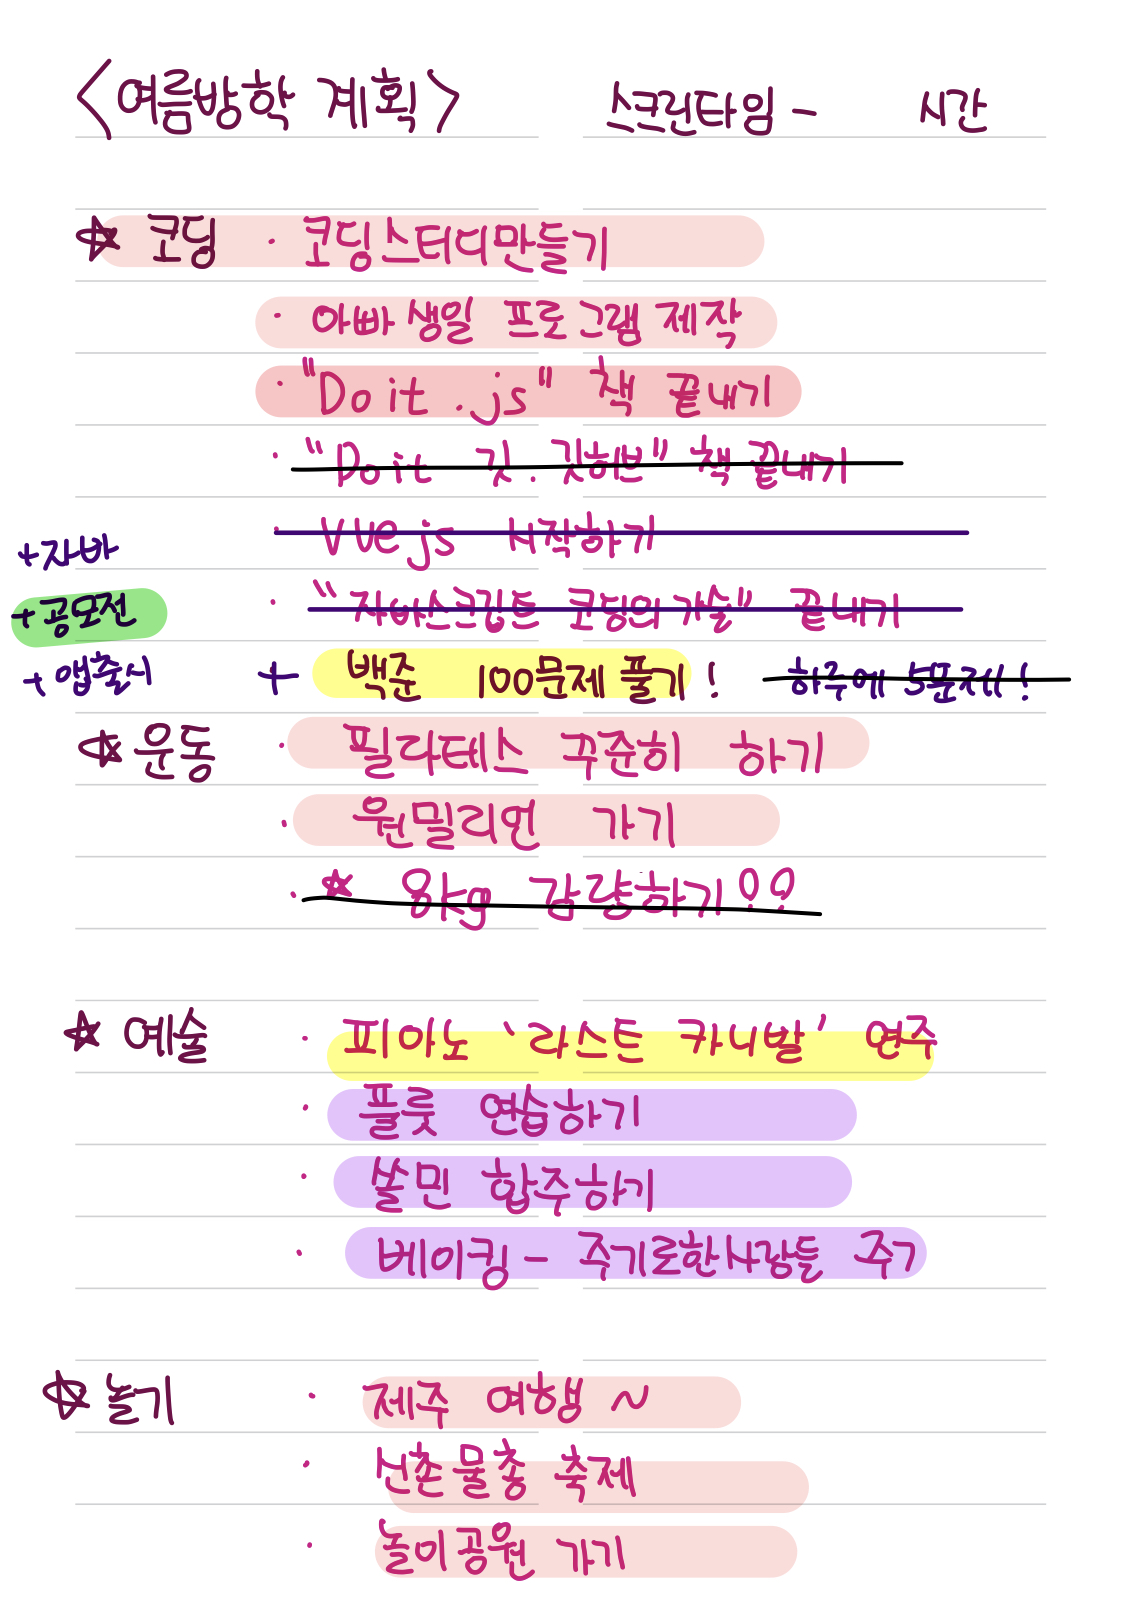 <여름방학 계획> 스크린타임 - 시간
☆ 코딩 · 코딩스터디만들기
· 아빠 생일 프로그램 제작
· "Do it .js" 책 끝내기
· "Do it 깃.깃허브" 책 끝내기
· Vue.js 시작하기
+자바
· "자바스크립트 코딩의 기술" 끝내기
+공모전
+ 앱출시 + 백준 100문제 풀기! 하루에 5문제!!
☆ 운동 · 필라테스 꾸준히 하기
· 원밀리언 가기
· ☆ 8kg 감량하기!!
☆ 예술 · 피아노 '라스트 카니발' 연주
· 플룻 연습하기
· 쏠민 합주하기
· 베이킹 - 주기로한사람들 주기
☆ 놀기 · 제주 여행 ~
· 신촌물총 축제
· 놀이공원 가기